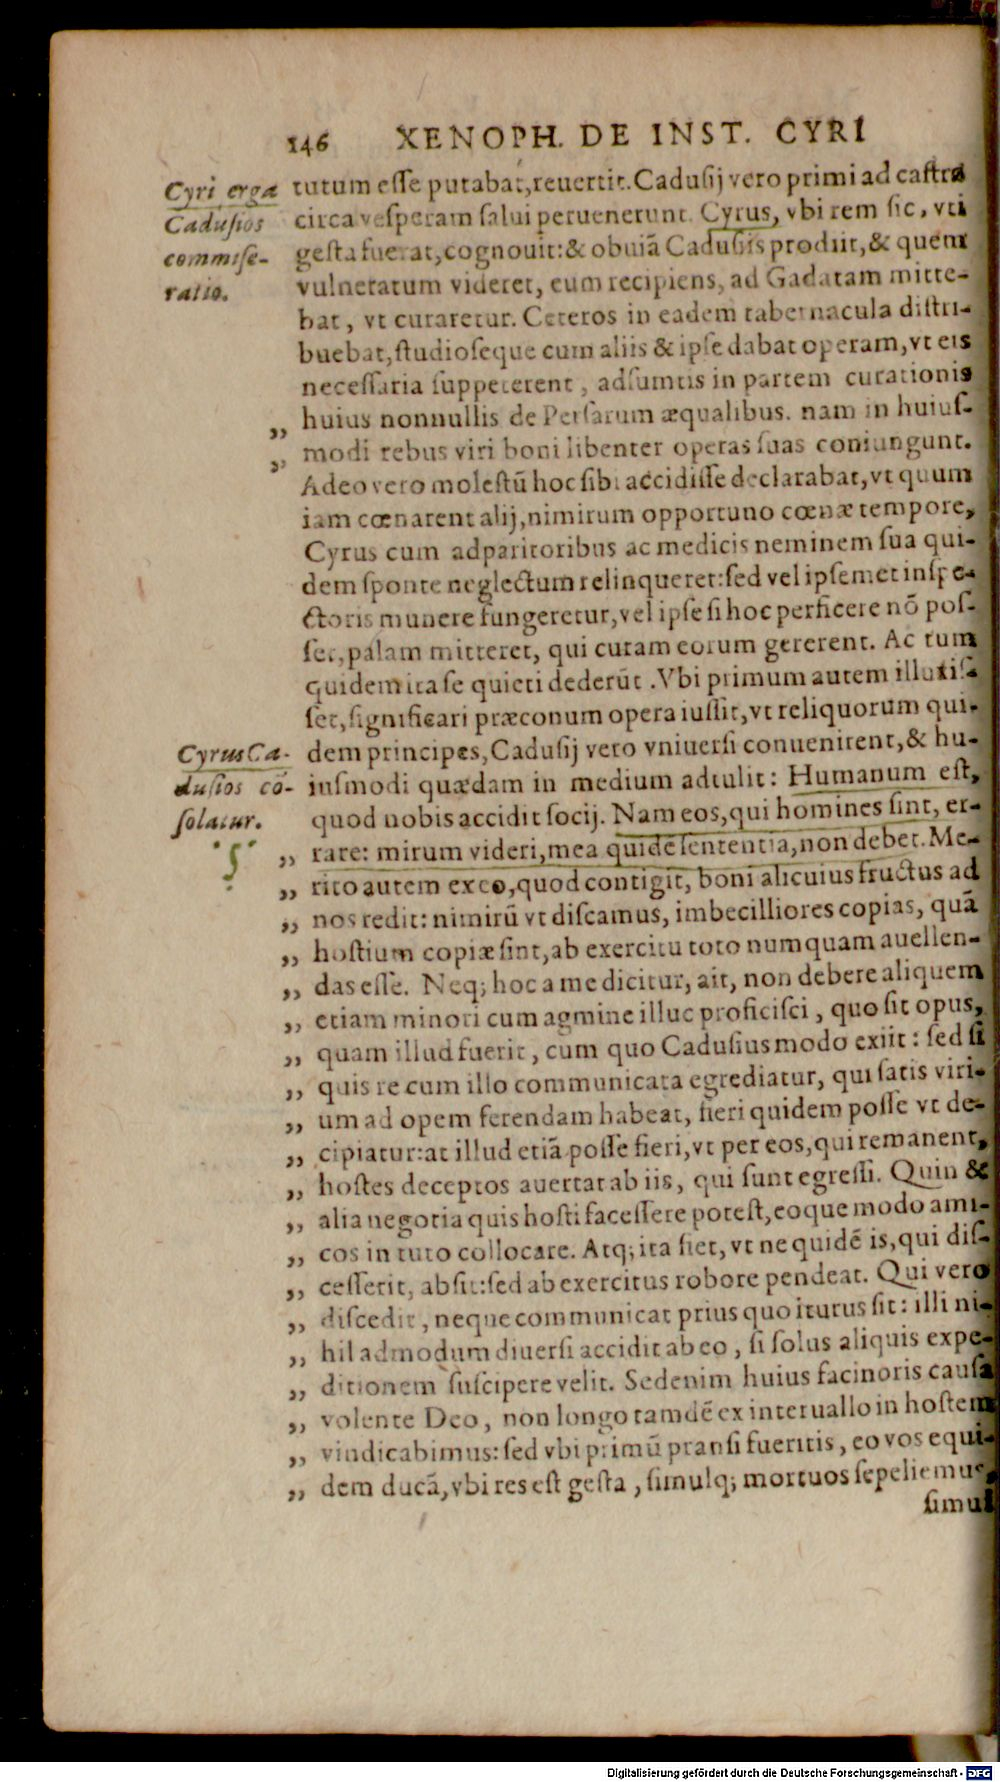 146 XENOPH. DE INST. CYRI
Cyri erga
Cadusios
commise-
ratio.
tutum esse putabat, reuertit. Cadusij vero primi ad castra
circa vesperam salui peruenerunt. Cyrus, vbi rem sic, vti
gesta fuerat, cognouit: & obuiā Cadusiis prodiit, & quem
vulneratum videret, eum recipiens, ad Gadatam mitte-
bat, vt curaretur. Ceteros in eadem tabernacula distri-
buebat, studioseque cum aliis & ipse dabat operam, vt eis
necessaria suppeterent, adsumtis in partem curationis
„ huius nonnullis de Persarum æqualibus. nam in huius-
„ modi rebus viri boni libenter operas suas coniungunt.
Adeo vero molestū hoc sibi accidisse declarabat, vt quum
iam cœnarent alij, nimirum opportuno cœnæ tempore,
Cyrus cum adparitoribus ac medicis neminem sua qui-
dem sponte neglectum relinqueret: sed vel ipsemet inspe-
ctoris munere fungeretur, vel ipse si hoc perficere nō pos-
set, palam mitteret, qui curam eorum gererent. Ac tum
quidem ita se quieti dederūt. Vbi primum autem illuxis-
set, significari præconum opera iussit, vt reliquorum qui-
Cyrus Ca-
dusios cō-
solatur.
dem principes, Cadusij vero vniuersi conuenirent, & hu-
iusmodi quædam in medium adtulit: Humanum est,
quod nobis accidit socij. Nam eos, qui homines sint, er-
„ rare: mirum videri, mea quidē sententia, non debet. Me-
„ rito autem ex eo, quod contigit, boni alicuius fructus ad
„ nos redit: nimirū vt discamus, imbecilliores copias, quā
„ hostium copiæ sint, ab exercitu toto numquam auellen-
„ das esse. Neq; hoc a me dicitur, ait, non debere aliquem
„ etiam minori cum agmine illuc proficisci, quo sit opus,
„ quam illud fuerit, cum quo Cadusius modo exiit: sed si
„ quis re cum illo communicata egrediatur, qui satis viri-
„ um ad opem ferendam habeat, fieri quidem posse vt de-
„ cipiatur: at illud etiā posse fieri, vt per eos, qui remanent,
„ hostes deceptos auertat ab iis, qui sunt egressi. Quin &
„ alia negotia quis hosti facessere potest, eoque modo ami-
„ cos in tuto collocare. Atq; ita fiet, vt ne quidē is, qui dis-
„ cesserit, absit: sed ab exercitus robore pendeat. Qui vero
„ discedit, neque communicat prius quo iturus sit: illi ni-
„ hil admodum diuersi accidit ab eo, si solus aliquis expe-
„ ditionem suscipere velit. Sed enim huius facinoris causa
„ volente Deo, non longo tamdē ex interuallo in hostem
„ vindicabimus: sed vbi primū pransi fueritis, eo vos equi-
„ dem ducā, vbi res est gesta, simulq; mortuos sepeliemus,
simul
Digitalisierung gefördert durch die Deutsche Forschungsgemeinschaft - DFG